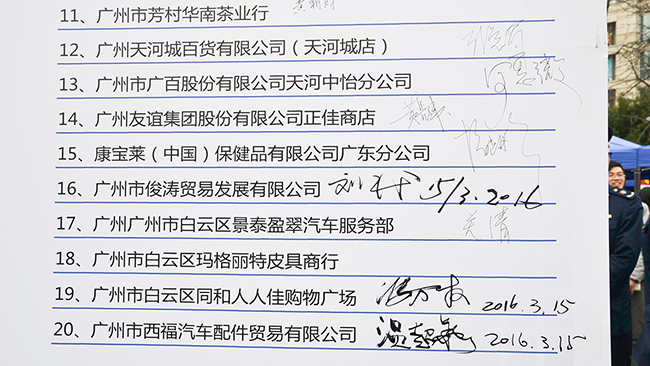 11、广州市芳村华南茶业行
12、广州天河城百货有限公司（天河城店）
13、广州市广百股份有限公司天河中怡分公司
14、广州友谊集团股份有限公司正佳商店
15、康宝莱（中国）保健品有限公司广东分公司
16、广州市俊涛贸易发展有限公司 15/3.2016
17、广州广州市白云区景泰盈翠汽车服务部
18、广州市白云区玛格丽特皮具商行
19、广州市白云区同和人人佳购物广场 2016.3.15
20、广州市西福汽车配件贸易有限公司 2016.3.15